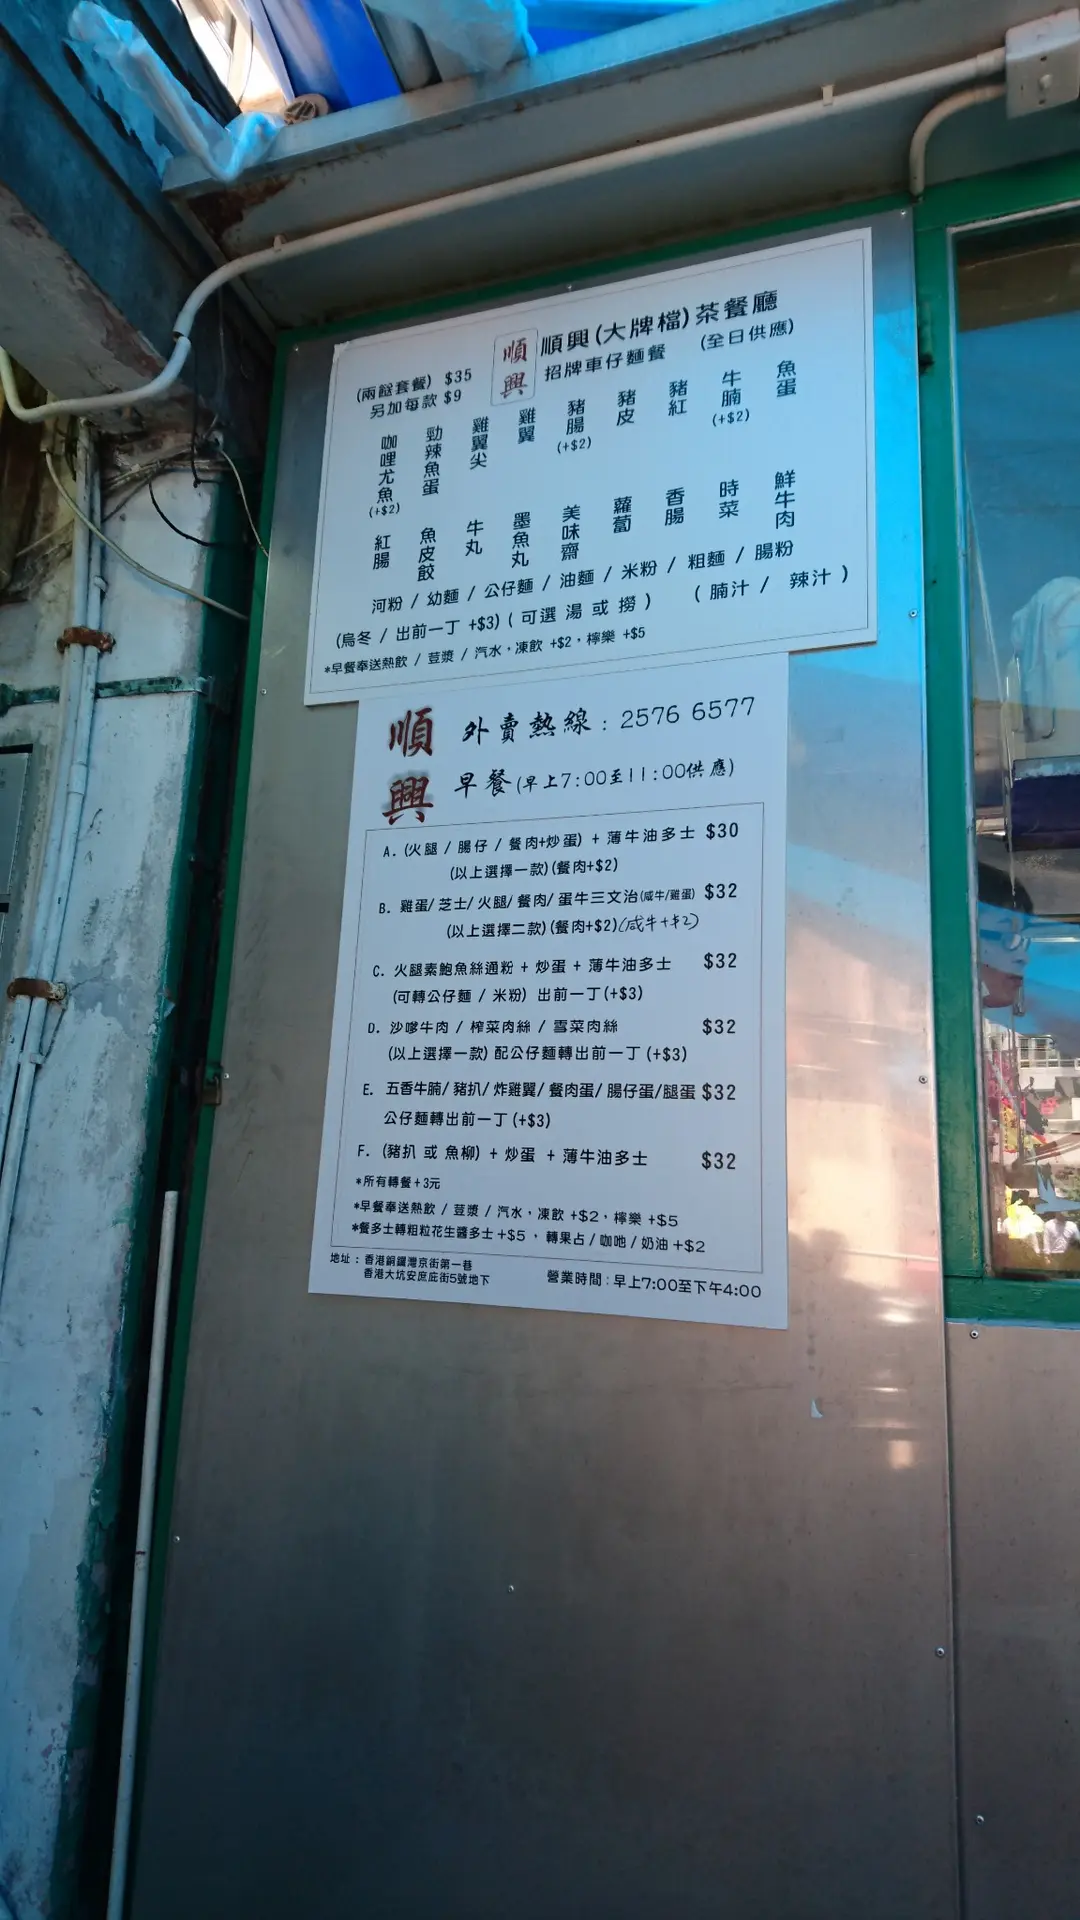 順興
順興(大牌檔)茶餐廳
(兩餸套餐) $35
招牌車仔麵餐 (全日供應)
另加每款 $9
魚蛋
牛腩(+$2)
豬紅
豬皮
豬腸(+$2)
雞翼
雞翼尖
勁辣魚蛋
咖哩尤魚(+$2)
鮮牛肉
時菜
香腸
蘿蔔
美味齋
墨魚丸
牛丸
魚皮餃
紅腸
河粉 / 幼麵 / 公仔麵 / 油麵 / 米粉 / 粗麵 / 腸粉
(烏冬 / 出前一丁 +$3) ( 可選 湯 或 撈 ) ( 腩汁 / 辣汁 )
*早餐奉送熱飲 / 荳漿 / 汽水，凍飲 +$2，檸樂 +$5
順興
外賣熱線：2576 6577
早餐(早上7:00至11:00供應)
A. (火腿 / 腸仔 / 餐肉+炒蛋) + 薄牛油多士 $30
(以上選擇一款)(餐肉+$2)
B. 雞蛋/ 芝士/ 火腿/ 餐肉/ 蛋牛三文治(咸牛/雞蛋) $32
(以上選擇二款)(餐肉+$2)(咸牛+$2)
C. 火腿素鮑魚絲通粉 + 炒蛋 + 薄牛油多士 $32
(可轉公仔麵 / 米粉) 出前一丁(+$3)
D. 沙嗲牛肉 / 榨菜肉絲 / 雪菜肉絲 $32
(以上選擇一款) 配公仔麵轉出前一丁 (+$3)
E. 五香牛腩/ 豬扒/ 炸雞翼/ 餐肉蛋/ 腸仔蛋/腿蛋 $32
公仔麵轉出前一丁 (+$3)
F. (豬扒 或 魚柳) + 炒蛋 + 薄牛油多士 $32
*所有轉餐+3元
*早餐奉送熱飲 / 荳漿 / 汽水，凍飲 +$2，檸樂 +$5
*餐多士轉粗粒花生醬多士+$5 ，轉果占/咖吔/奶油+$2
地址：香港銅鑼灣京街第一巷
香港大坑安庶庇街5號地下
營業時間：早上7:00至下午4:00